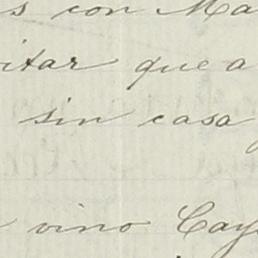 s con Ma
itar que a
sin casa
vino Cay